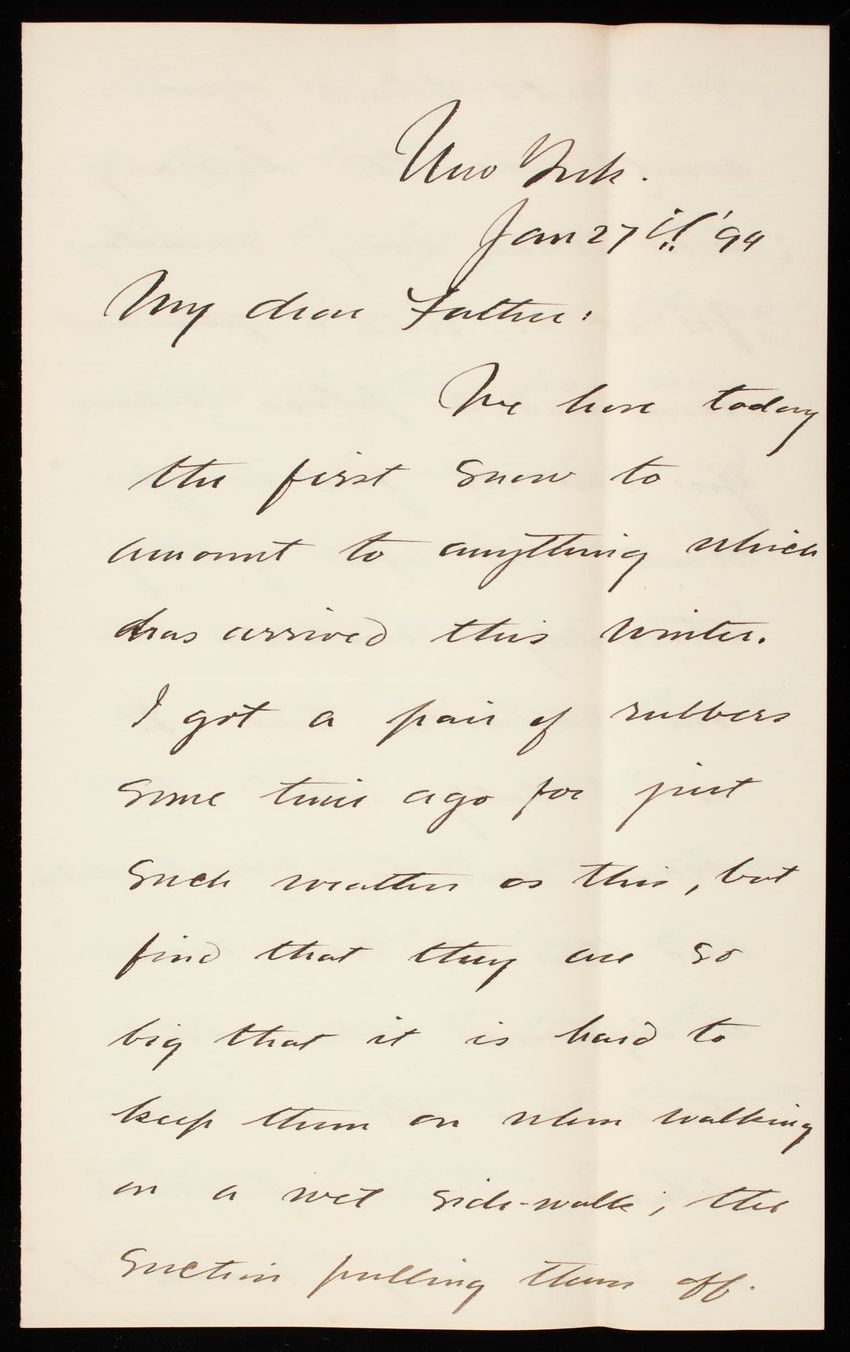 New York.
Jan 27th '94
My dear Father:
We have today
the first snow to
amount to anything which
has arrived this winter.
I got a pair of rubbers
some time ago for just
such weather as this, but
find that they are so
big that it is hard to
keep them on when walking
on a wet side-walk; the
suction pulling them off.